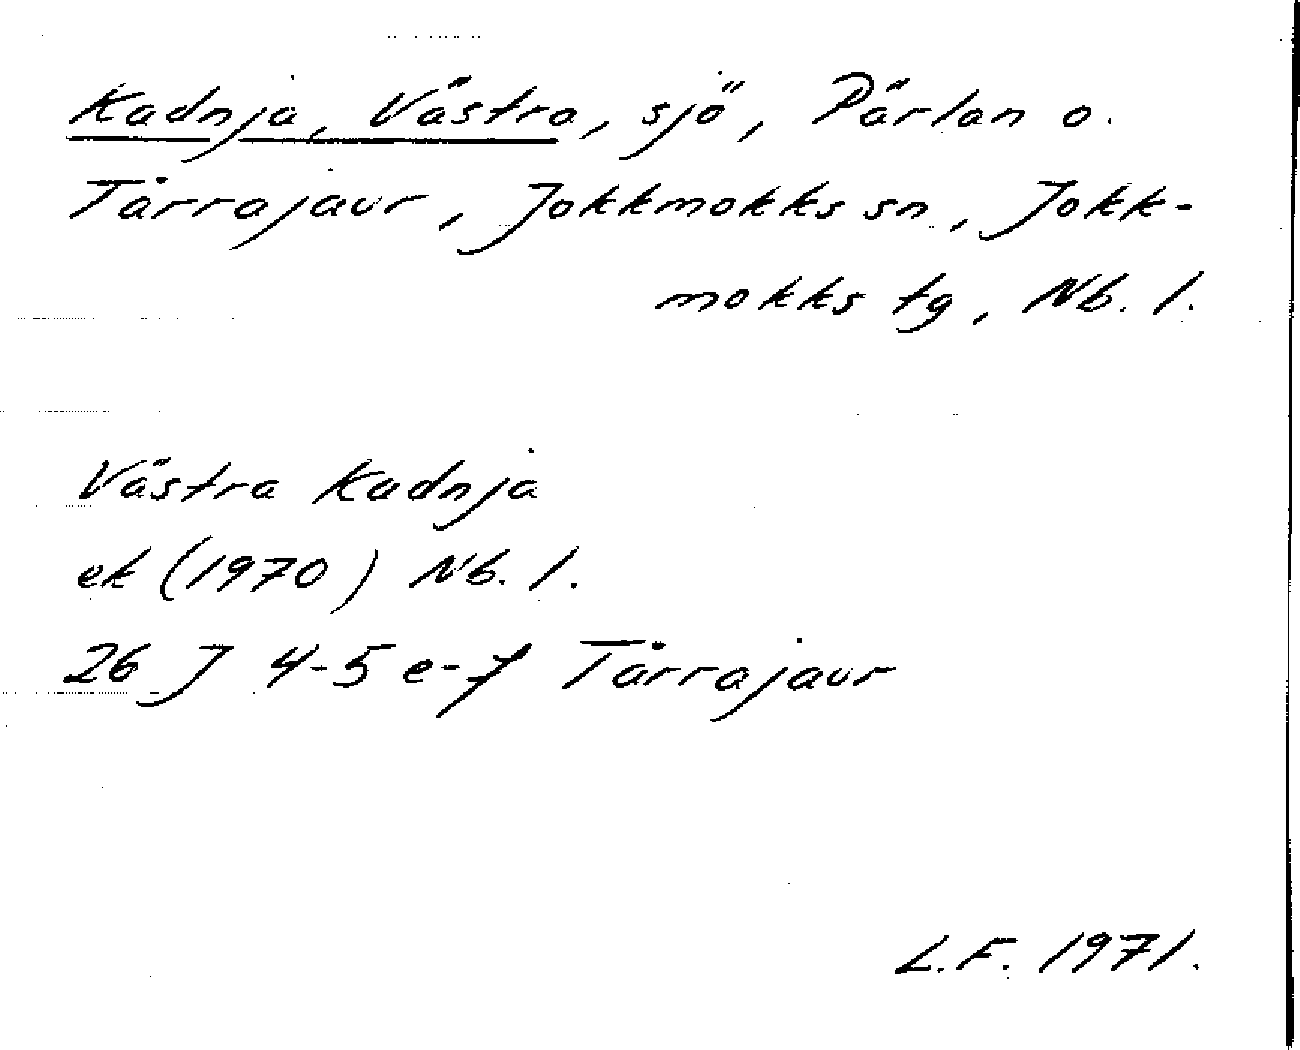 Kadnja, Västra, sjö, Pärlan o.
Tårrajaur, Jokkmokks sn, Jokk-
mokks tg, Nb. l.
Västra Kadnja
ek (1970) Nb. l.
26 J 4-5 e-f Tårrajaur
L.F. 1971.